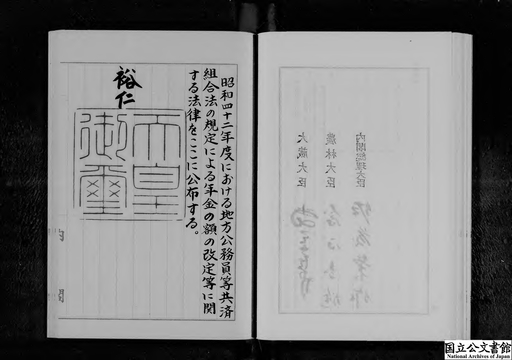 昭和四十二年度における地方公務員等共済
組合法の規定による年金の額の改定等に関
する法律をここに公布する。
裕仁
天皇
御璽
内閣総理大臣
農林大臣
大蔵大臣
国立公文書館
National Archives of Japan